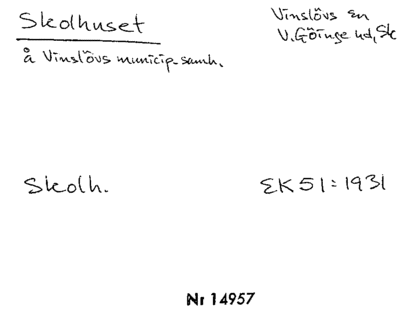 Skolhuset
Vinslövs sn
V. Göinge hd, Sk
å Vinslövs municip.samh.
Skolh.
EK 51: 1931
Nr 14957